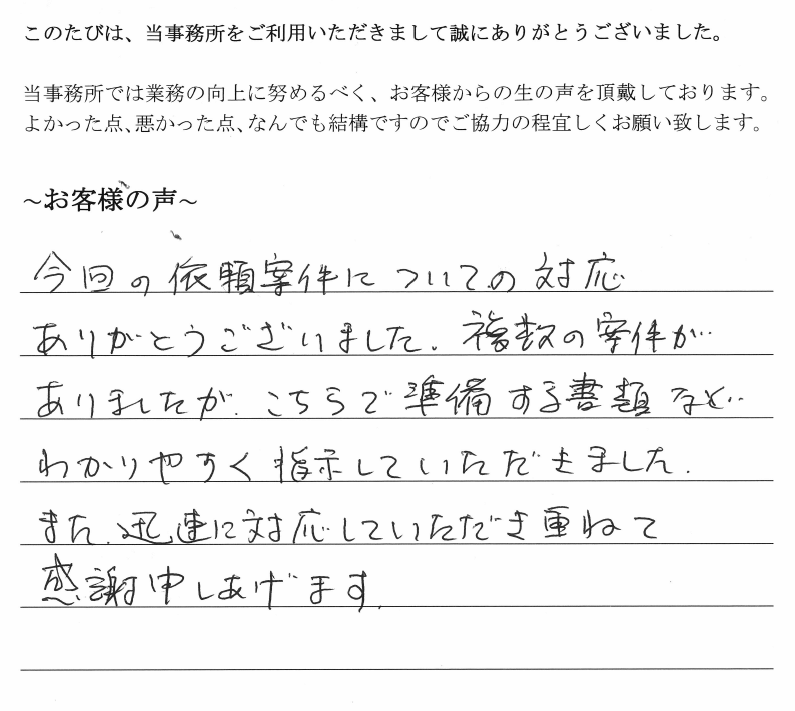 このたびは、当事務所をご利用いただきまして誠にありがとうございました。
当事務所では業務の向上に努めるべく、お客様からの生の声を頂戴しております。
よかった点、悪かった点、なんでも結構ですのでご協力の程宜しくお願い致します。
~お客様の声~
今回の依頼案件についての対応
ありがとうございました. 複数の案件が
ありましたが. こちらで準備する書類など
わかりやすく指示していただきました.
また. 迅速に対応していただき重ねて
感謝申しあげます.